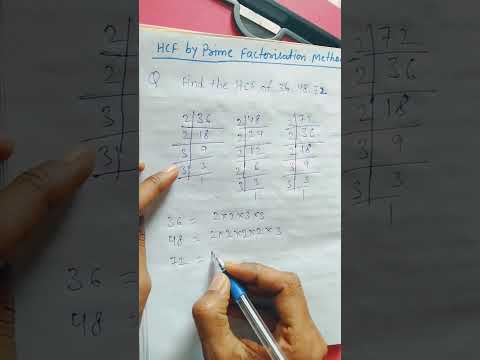 HCF by Prime Factorization Metho
Q Find the HCF of 36, 48, 72
2 36 2 48 2 72
2 18 2 24 2 36
3 9 2 12 2 18
3 3 2 6 3 9
1 3 3 3 3
1 1
36 = 2×2×3×3
48 = 2×2×2×2×3
72 =